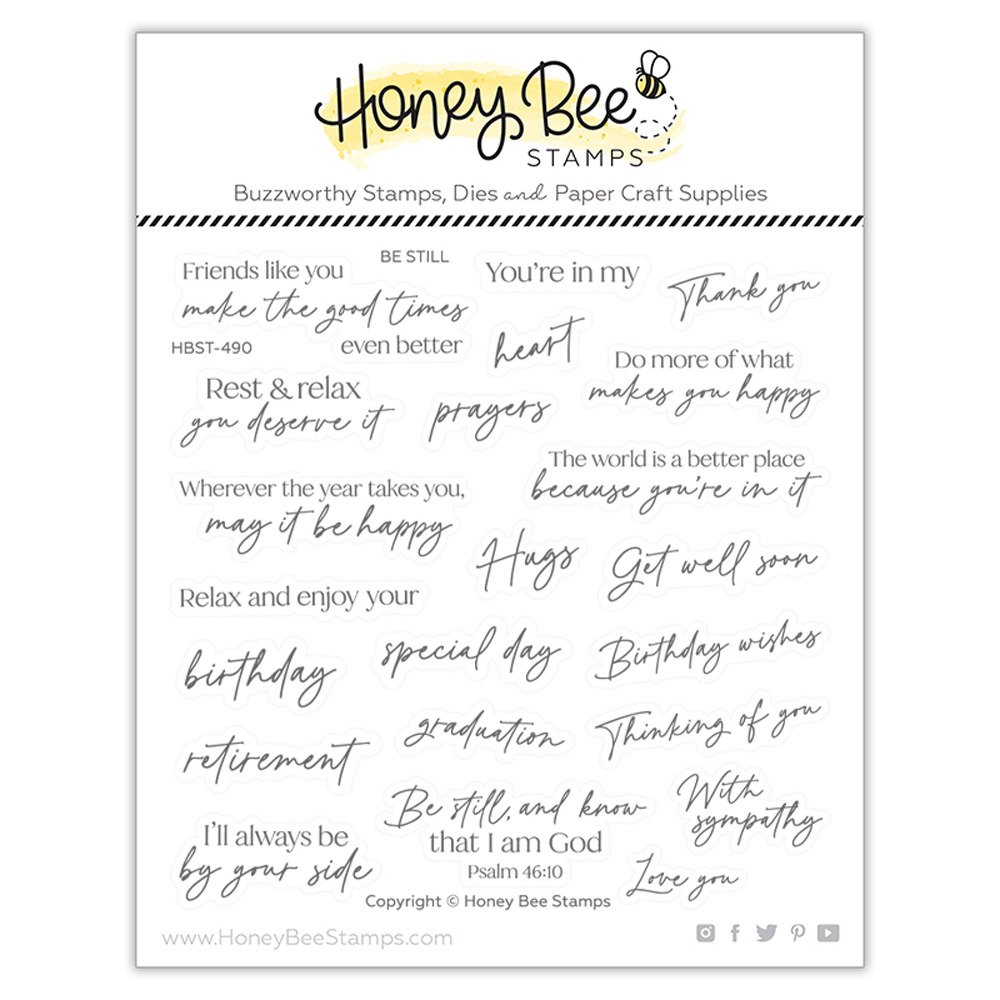 Honey Bee
STAMPS
Buzzworthy Stamps, Dies and Paper Craft Supplies
BE STILL
Friends like you
make the good times
even better
HBST-490
You're in my
heart
Thank you
Rest & relax
you deserve it
prayers
Do more of what
makes you happy
The world is a better place
because you're in it
Wherever the year takes you,
may it be happy
Hugs
Get well soon
Relax and enjoy your
birthday
special day
Birthday wishes
retirement
graduation
Thinking of you
Be still, and know
that I am God
Psalm 46:10
With
sympathy
I'll always be
by your side
Love you
Copyright © Honey Bee Stamps
www.HoneyBeeStamps.com